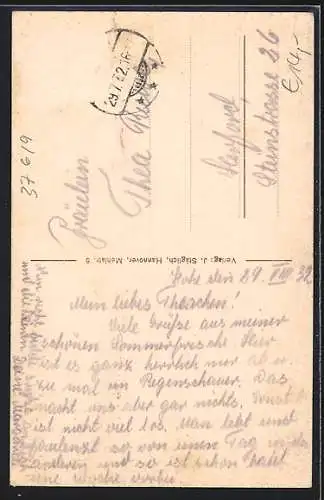 37619
29.7.32.16
€ 14,-
Fräulein
Thea
Herford,
Steinstrasse 26
Verlag: J. Stäglich, Hannover, Mehlstr. 5
den 29. VII 32
Mein liebes Theachen!
Viele Grüsse aus meiner
schönen Sommerfrische. Hier
ist es ganz herrlich nur ab u.
zu mal ein Regenschauer. Das
macht uns aber gar nichts. Sonst
ist nicht viel los. Man lebt und
faulenzt so von einem Tag in den
anderen und so ist schon bald
eine Woche vorbei